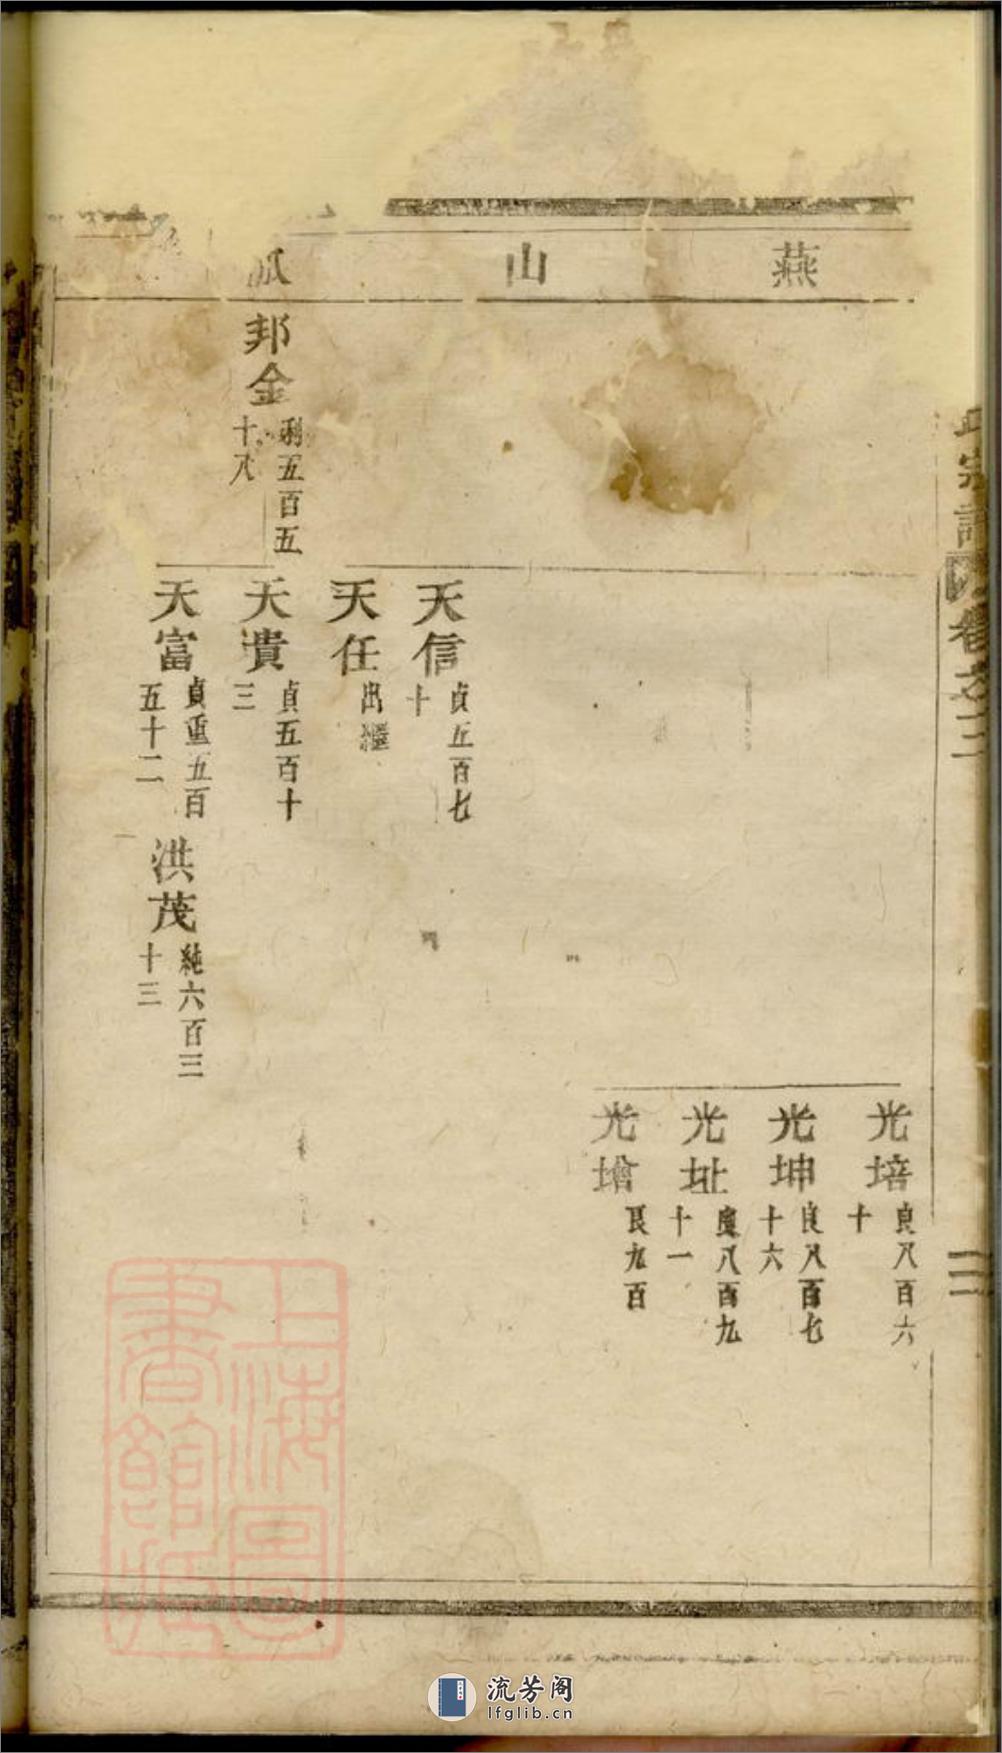 燕山派
宗譜
卷之三
三
光培
良八百六
十
光坤
良八百七
十六
光址
良八百九
十一
光壋
良九百
天信
貞五百七
十
天任
出繼
天貴
貞五百十
三
邦金
利五百五
十八
天富
貞重五百
五十二
洪茂
純六百三
十三
上海圖書館藏
流芳阁
lfglib.cn